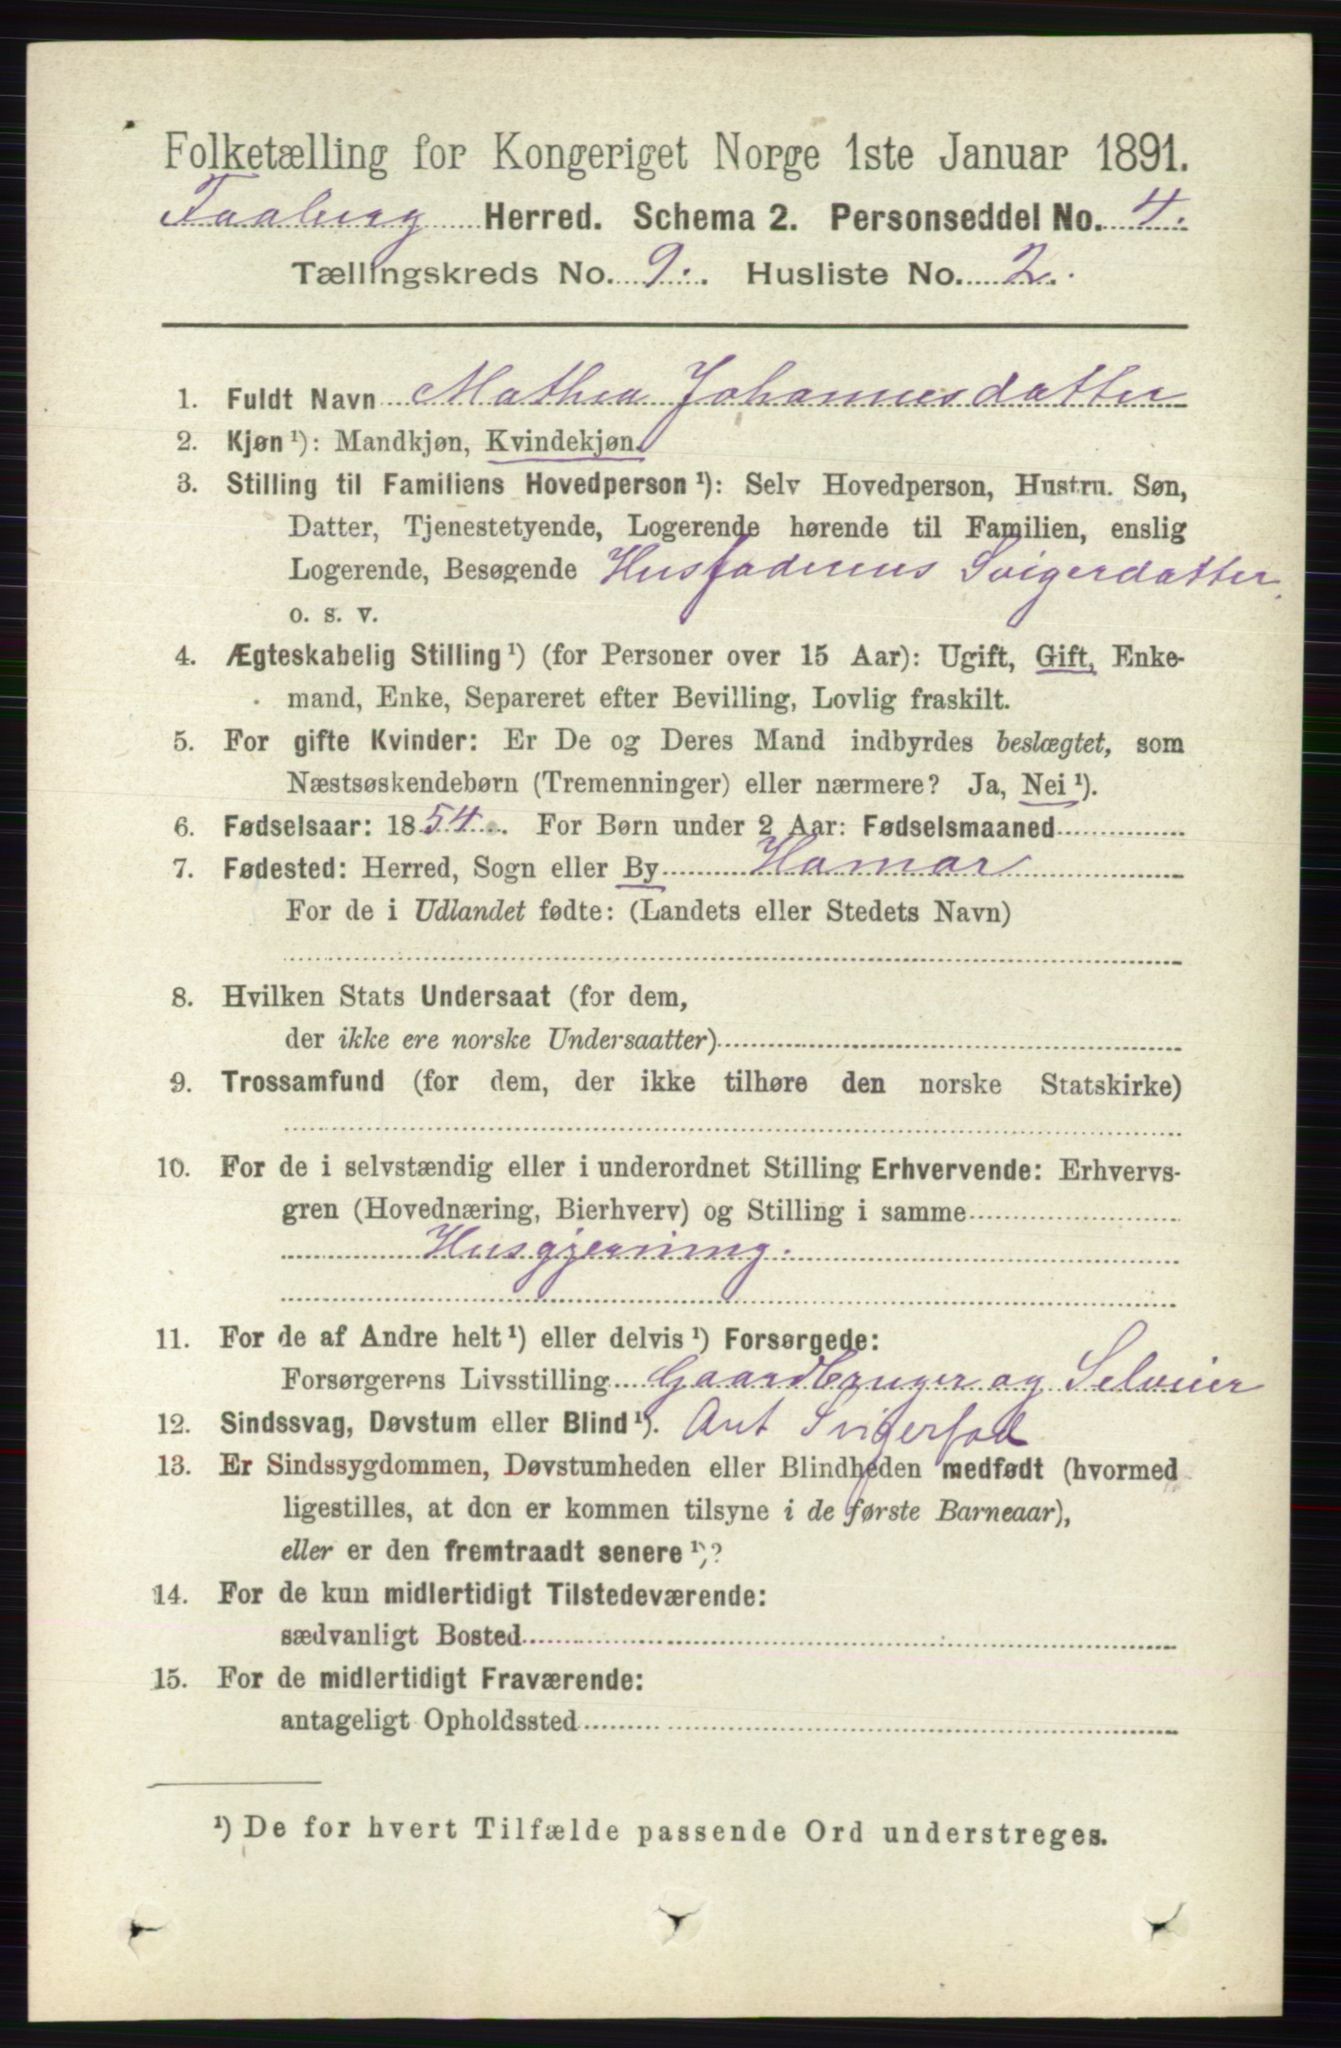 Folketælling for Kongeriget Norge 1ste Januar 1891.
Faaberg Herred. Schema 2. Personseddel No. 4.
Tællingskreds No. 9. Husliste No. 2.
1. Fuldt Navn Mathea Johannesdatter
2. Kjøn¹): Mandkjøn, Kvindekjøn.
3. Stilling til Familiens Hovedperson¹): Selv Hovedperson, Hustru. Søn,
Datter, Tjenestetyende, Logerende hørende til Familien, enslig
Logerende, Besøgende Husfaderens Svigerdatter
o. s. v.
4. Ægteskabelig Stilling¹) (for Personer over 15 Aar): Ugift, Gift, Enke-
mand, Enke, Separeret efter Bevilling, Lovlig fraskilt.
5. For gifte Kvinder: Er De og Deres Mand indbyrdes beslægtet, som
Næstsøskendebørn (Tremenninger) eller nærmere? Ja, Nei¹).
6. Fødselsaar: 1854. For Børn under 2 Aar: Fødselsmaaned
7. Fødested: Herred, Sogn eller By Hamar
For de i Udlandet fødte: (Landets eller Stedets Navn)
8. Hvilken Stats Undersaat (for dem,
der ikke ere norske Undersaatter)
9. Trossamfund (for dem, der ikke tilhøre den norske Statskirke)
10. For de i selvstændig eller i underordnet Stilling Erhvervende: Erhvervs-
gren (Hovednæring, Bierhverv) og Stilling i samme
Husgjerning.
11. For de af Andre helt¹) eller delvis¹) Forsørgede:
Forsørgerens Livsstilling Gaardbruger og Seleier
12. Sindssvag, Døvstum eller Blind¹). Svigerfad
13. Er Sindssygdommen, Døvstumheden eller Blindheden medfødt (hvormed
ligestilles, at den er kommen tilsyne i de første Barneaar),
eller er den fremtraadt senere¹)?
14. For de kun midlertidigt Tilstedeværende:
sædvanligt Bosted
15. For de midlertidigt Fraværende:
antageligt Opholdssted
¹) De for hvert Tilfælde passende Ord understreges.